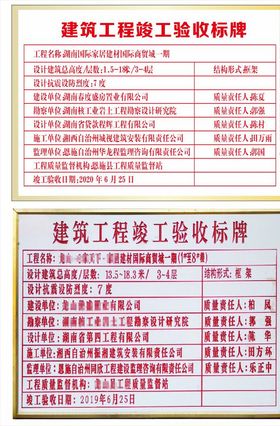 建筑工程竣工验收标牌
工程名称:湖南国际家居建材国际商贸城一期
设计建筑总高度/层数:1.5-18米/3-4层 结构形式:框架
设计抗震设防烈度:7度
建设单位:湖南春度盛房置业有限公司 质量责任人:陈夏
勘察单位:湖南核工业岩土工程勘察设计研究院 质量责任人:郭强
设计单位:湖南省贷款程辉工程有限公司 质量责任人:陈村
施工单位:湘西自治州城视建筑安装有限责任公司 质量责任人:田方
监理单位:恩施自治州华龙程监理咨询有限责任公司 质量责任人:郭雨国
工程质量监督机构:恩施县工程质量监督站
竣工验收日期:2020年6月25日
建筑工程竣工验收标牌
工程名称: 建材国际商贸城一期
设计建筑总高度/层数: 13.5~18.3米/ 3-4层 结构形式:框架
设计抗震设防烈度: 7度
建设单位: 业有限公司 质量责任人:柏 凤
勘察单位:湖南核工业 工程勘察设计研究院 质量责任人:郭 强
设计单位:湖南省第四工程有限公司 质量责任人:陈 华
施工单位:湘西自治州振湘建筑安装有限责任公司 质量责任人:田方环
监理单位:恩施自治州同欣工程建设监理咨询有限责任公司 质量责任人:乐正中
工程质量监督机构: 工程质量监督站
竣工验收日期:2019年6月25日